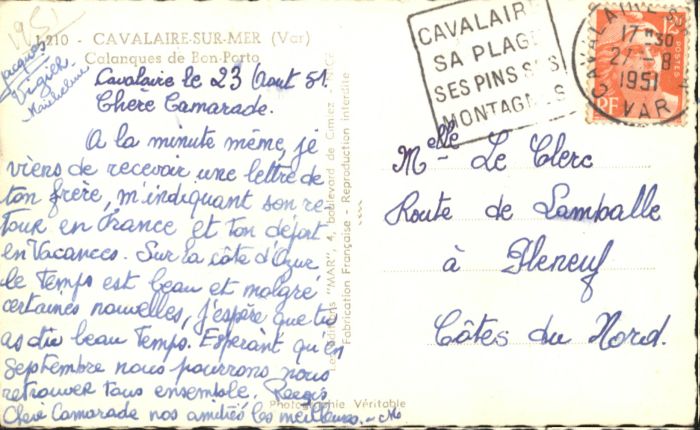 1951
L 210 - CAVALAIRE-SUR-MER (Var)
Calanques de Bon-Porto
Jacques
Vigier
Cavalaire le 23 Aout 51.
Chère Camarade.
A la minute même, je
viens de recevoir une lettre de
ton frère, m'indiquant son re
tour en France et ton départ
en Vacances. Sur la côte d'Azur
le Temps est beau et malgré
certaines nouvelles, j'espère que tu
as du beau Temps. Espérant qu'en
Septembre nous pourrons nous
retrouver tous ensemble. Reçois
Chère Camarade nos amitiés les meilleures.
Les éditions "MAR", 4, boulevard de Cimiez, NICE
Fabrication Française - Reproduction interdite
Photographie Véritable
CAVALAIRE
SA PLAGE
SES PINS SES
MONTAGNES
CAVALAIRE
17 H 30
27 - 8
1951
VAR
POSTES
RF
Melle Le Clerc
Route de Lamballe
à Pleneuf
Côtes du Nord.